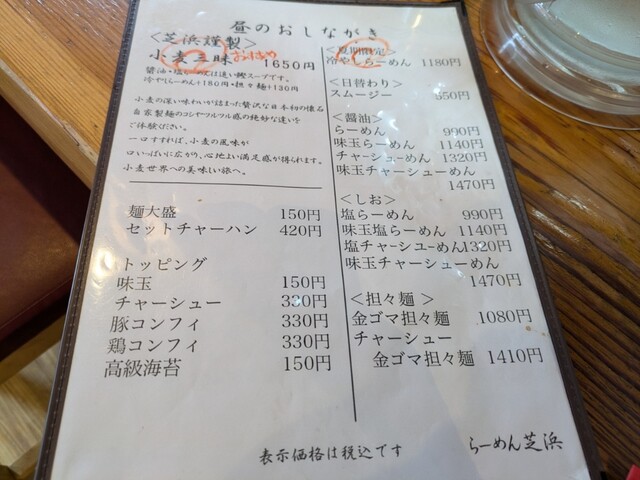 昼のおしながき
<芝浜謹製>
小麦三昧 1650円
小麦の深い味わいが詰まった贅沢な日本初の懐石
自家製麺のコシやツルツル感の絶妙な違いを
ご体験ください。
一口すすれば、小麦の風味が
口いっぱいに広がり、心地よい満足感が得られます。
小麦世界への美味しい旅へ。
麺大盛 150円
セットチャーハン 420円
トッピング
味玉 150円
チャーシュー 330円
豚コンフィ 330円
鶏コンフィ 330円
高級海苔 150円
<夏期限定>
冷やしらーめん 1180円
<日替わり>
スムージー 350円
<醤油>
らーめん 990円
味玉らーめん 1140円
チャーシューめん 1320円
味玉チャーシューめん
1470円
<しお>
塩らーめん 990円
味玉塩らーめん 1140円
塩チャーシューめん 1320円
味玉チャーシューめん
1470円
<担々麺>
金ゴマ担々麺 1080円
チャーシュー
金ゴマ担々麺 1410円
表示価格は税込です
らーめん芝浜